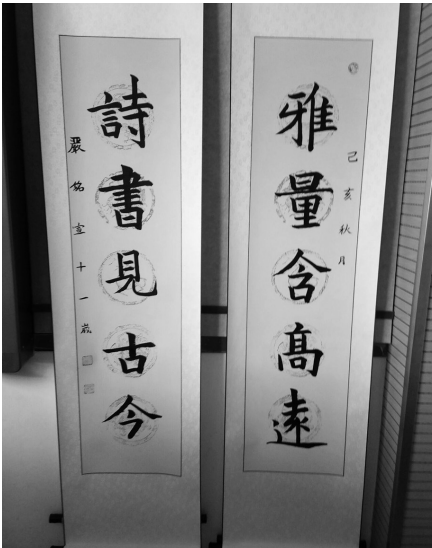 雅量含高遠
己亥秋月
詩書見古今
嚴銘宣十一歲